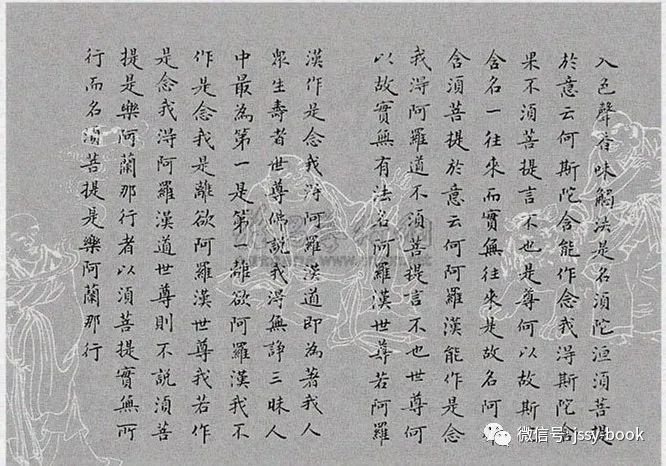 入色聲香味觸法是名須陀洹須菩提
於意云何斯陀含能作念我得斯陀含
果不須菩提言不也是尊何以故斯
含名一往來而實無往來是故名阿
含須菩提於意云何阿羅漢能作是念
我得阿羅道不須菩提言不也世尊何
以故實無有法名阿羅漢世尊若阿羅
漢作是念我得阿羅漢道即為著我人
眾生壽者世尊佛說我得無諍三昧人
中最為第一是第一離欲阿羅漢我不
作是念我是離欲阿羅漢世尊我若作
是念我得阿羅漢道世尊則不說須菩
提是樂阿蘭那行者以須菩提實無所
行而名須菩提是樂阿蘭那行
微信号: jssy-book